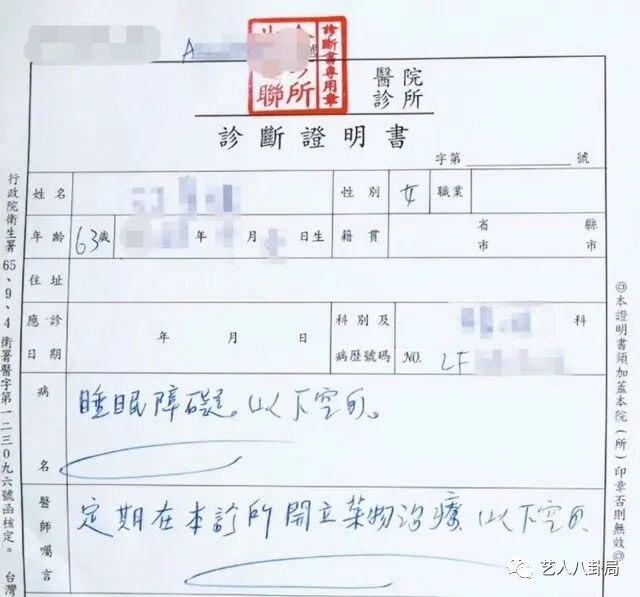 A
診斷書專用章
聯 所
號
醫院
診所
診斷證明書
字第 號
姓名 性別 女 職業
年齡 63歲 年 月 日生 籍貫 省市 縣市
住址
應診日期 年 月 日 科別及病歷號碼 科 NO. LF
病名 睡眠障礙。以下空白
醫師囑言 定期在本診所開立藥物治療 以下空白
行政院衛生署65、9、4衛署醫字第一二三〇九六號函核定。台灣
◎本證明書須加蓋本院(所)印章否則無效◎
艺人八卦局